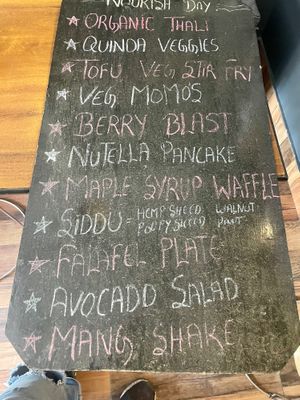 NOURISH DAY
ORGANIC THALI
QUINOA VEGGIES
TOFU VEG STIR FRY
VEG MOMO'S
BERRY BLAST
NUTELLA PANCAKE
MAPLE SYRUP WAFFLE
SIDDU - HEMP SHEED WALNUT
POPPY SHEED
FALAFEL PLATE
AVOCADO SALAD
MANG SHAKE